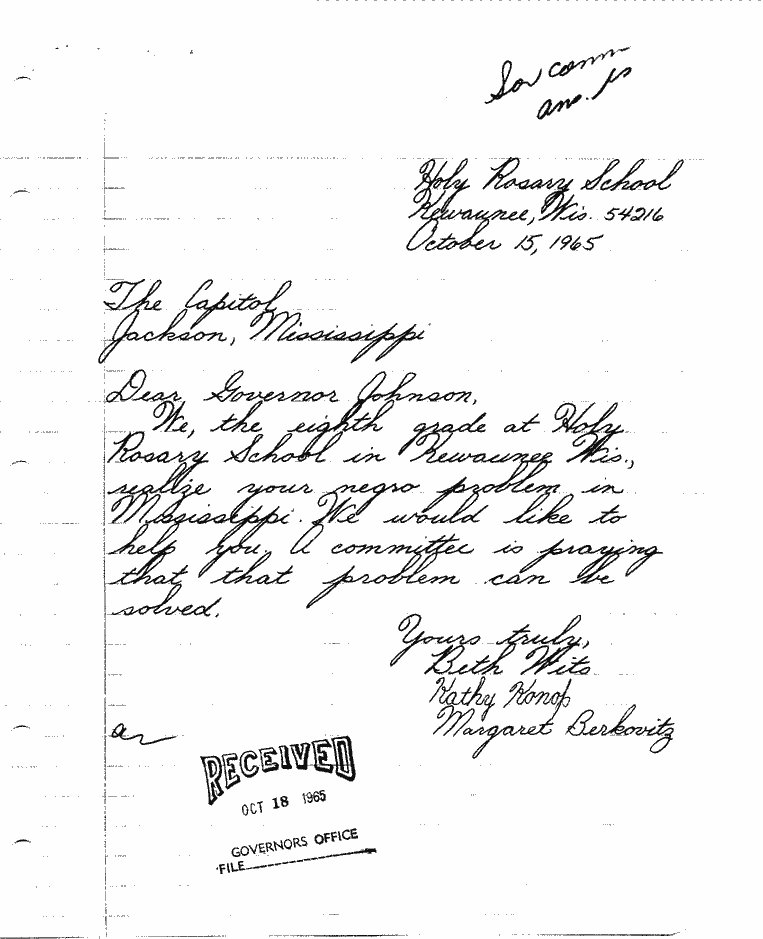 Sov comm
ans.
Holy Rosary School
Kewaunee, Wis. 54216
October 15, 1965
The Capitol
Jackson, Mississippi
Dear Governor Johnson,
We, the eighth grade at Holy
Rosary School in Kewaunee Wis.,
realize your negro problem in
Mississippi. We would like to
help you. A committee is praying
that that problem can be
solved.
Yours truly,
Beth Wits
Kathy Konop
Margaret Berkovitz
RECEIVED
OCT 18 1965
GOVERNORS OFFICE
FILE